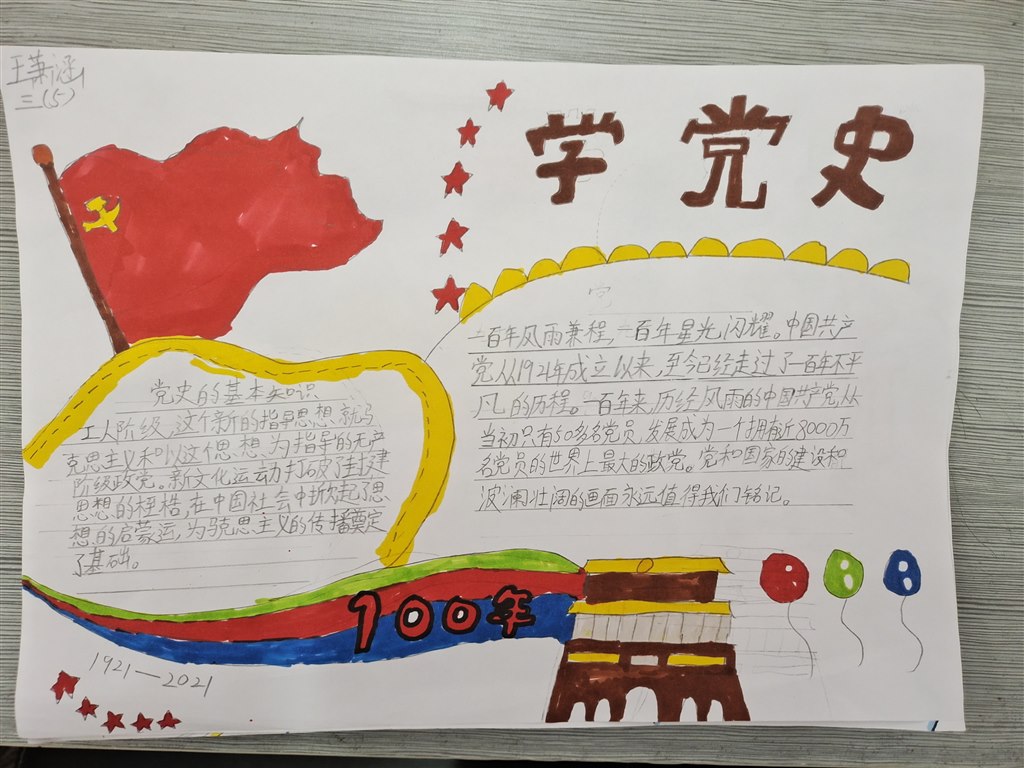 王萧涵
三(5)
学党史
一百年风雨兼程,一百年星光闪耀。中国共产
党从1921年成立以来,至今已经走过了一百年不平
凡的历程。一百年来,历经风雨的中国共产党,从
当初只有50多名党员,发展成为一个拥有近8000万
名党员的世界上最大的政党。党和国家的建设积
波澜壮阔的画面永远值得我们铭记。
党史的基本知识
工人阶级,这个新的指导思想就马
克思主义和以这个思想为指导的无产
阶级政党。新文化运动打破封建
思想的桎梏,在中国社会中掀起了思
想的启蒙运,为克思主义的传播奠定
了基础。
100年
1921—2021